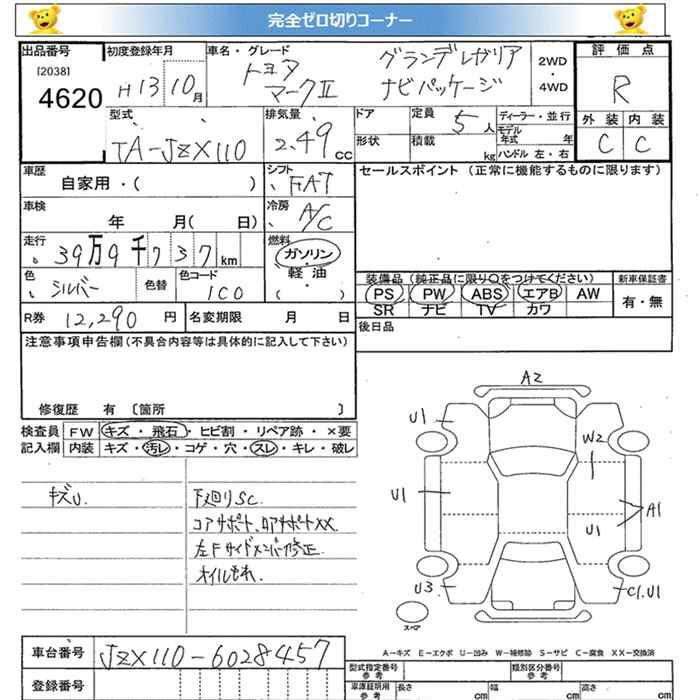 完全ゼロ切りコーナー
出品番号
[2038]
4620
初度登録年月
H 13 10 月
車名・グレード
トヨタ
マークⅡ
グランデレガリア
ナビパッケージ
2WD
・
4WD
評価点
R
外装 内装
C C
型式
TA-JZX110
排気量
2.49 cc
ドア
形状
定員 5 人
積載 kg
ディーラー・並行
モデル年式 年
ハンドル 左・右
車歴
自家用・( )
シフト
FAT
セールスポイント (正常に機能するものに限ります)
車検
年 月( 日)
冷房
A/C
走行
39万9千737 km
燃料
ガソリン
軽油
( )
色
シルバー
色替
色コード
1C0
装備品(純正品に限り○をつけてください)
PS PW ABS エアB AW
SR ナビ TV カワ
新車保証書
有・無
R券 12,290 円
名変期限 月 日
後日品
注意事項申告欄(不具合内容等は具体的に記入して下さい)
修復歴 有 〔箇所 〕
検査員 FW キズ・飛石・ヒビ割・リペア跡・×要
記入欄 内装 キズ・汚レ・コゲ・穴・スレ・キレ・破レ
キズU.
下廻りSC.
コアサポート、ロアサポートXX.
左Fサイドメンバー修正.
オイルもれ.
A2
U1
W2
U1
A1
U1
U3
C1.U1
スペア
A−キズ E−エクボ U−凹み W−補修跡 S−サビ C−腐食 XX−交換済
車台番号 JZX110-6028457
登録番号
型式指定番号
参考
類別区分番号
参考
車庫証明用
参考
長さ cm
幅 cm
高さ cm